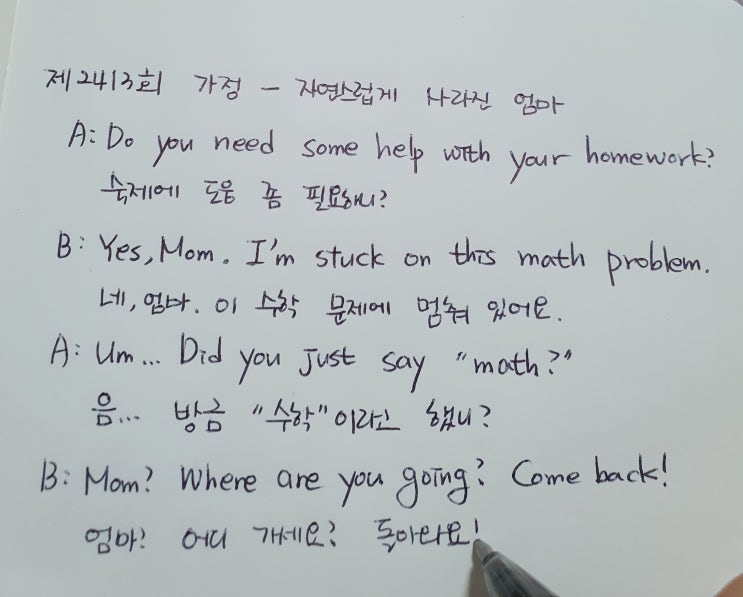 제2413회 가정 - 자연스럽게 사라진 엄마
A: Do you need some help with your homework?
숙제에 도움 좀 필요하니?
B: Yes, Mom. I'm stuck on this math problem.
네, 엄마. 이 수학 문제에 멈춰 있어요.
A: Um... Did you just say "math?"
음... 방금 "수학"이라고 했니?
B: Mom? Where are you going? Come back!
엄마? 어디 가세요? 돌아와요!